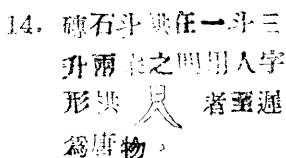 14. 磚石斗拱在一斗三
升兩朵之間用人字
形拱 者至遲
爲唐物。